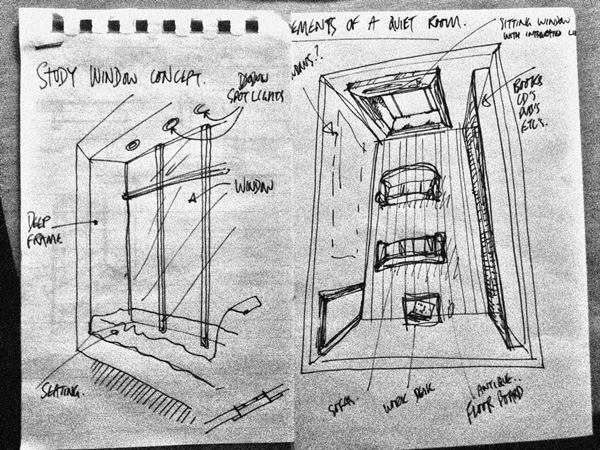 STUDY WINDOW CONCEPT.
DOWN
SPOTLIGHTS
WINDOW
DEEP
FRAME
SEATING.
EMENTS OF A QUIET ROOM.
SITTING WINDOW
WITH INTEGRATED
BOOKS
CD'S
DVD'S
ETC'S.
SOFAS
WORK DESK
ANTIQUE..
FLOOR BOARD